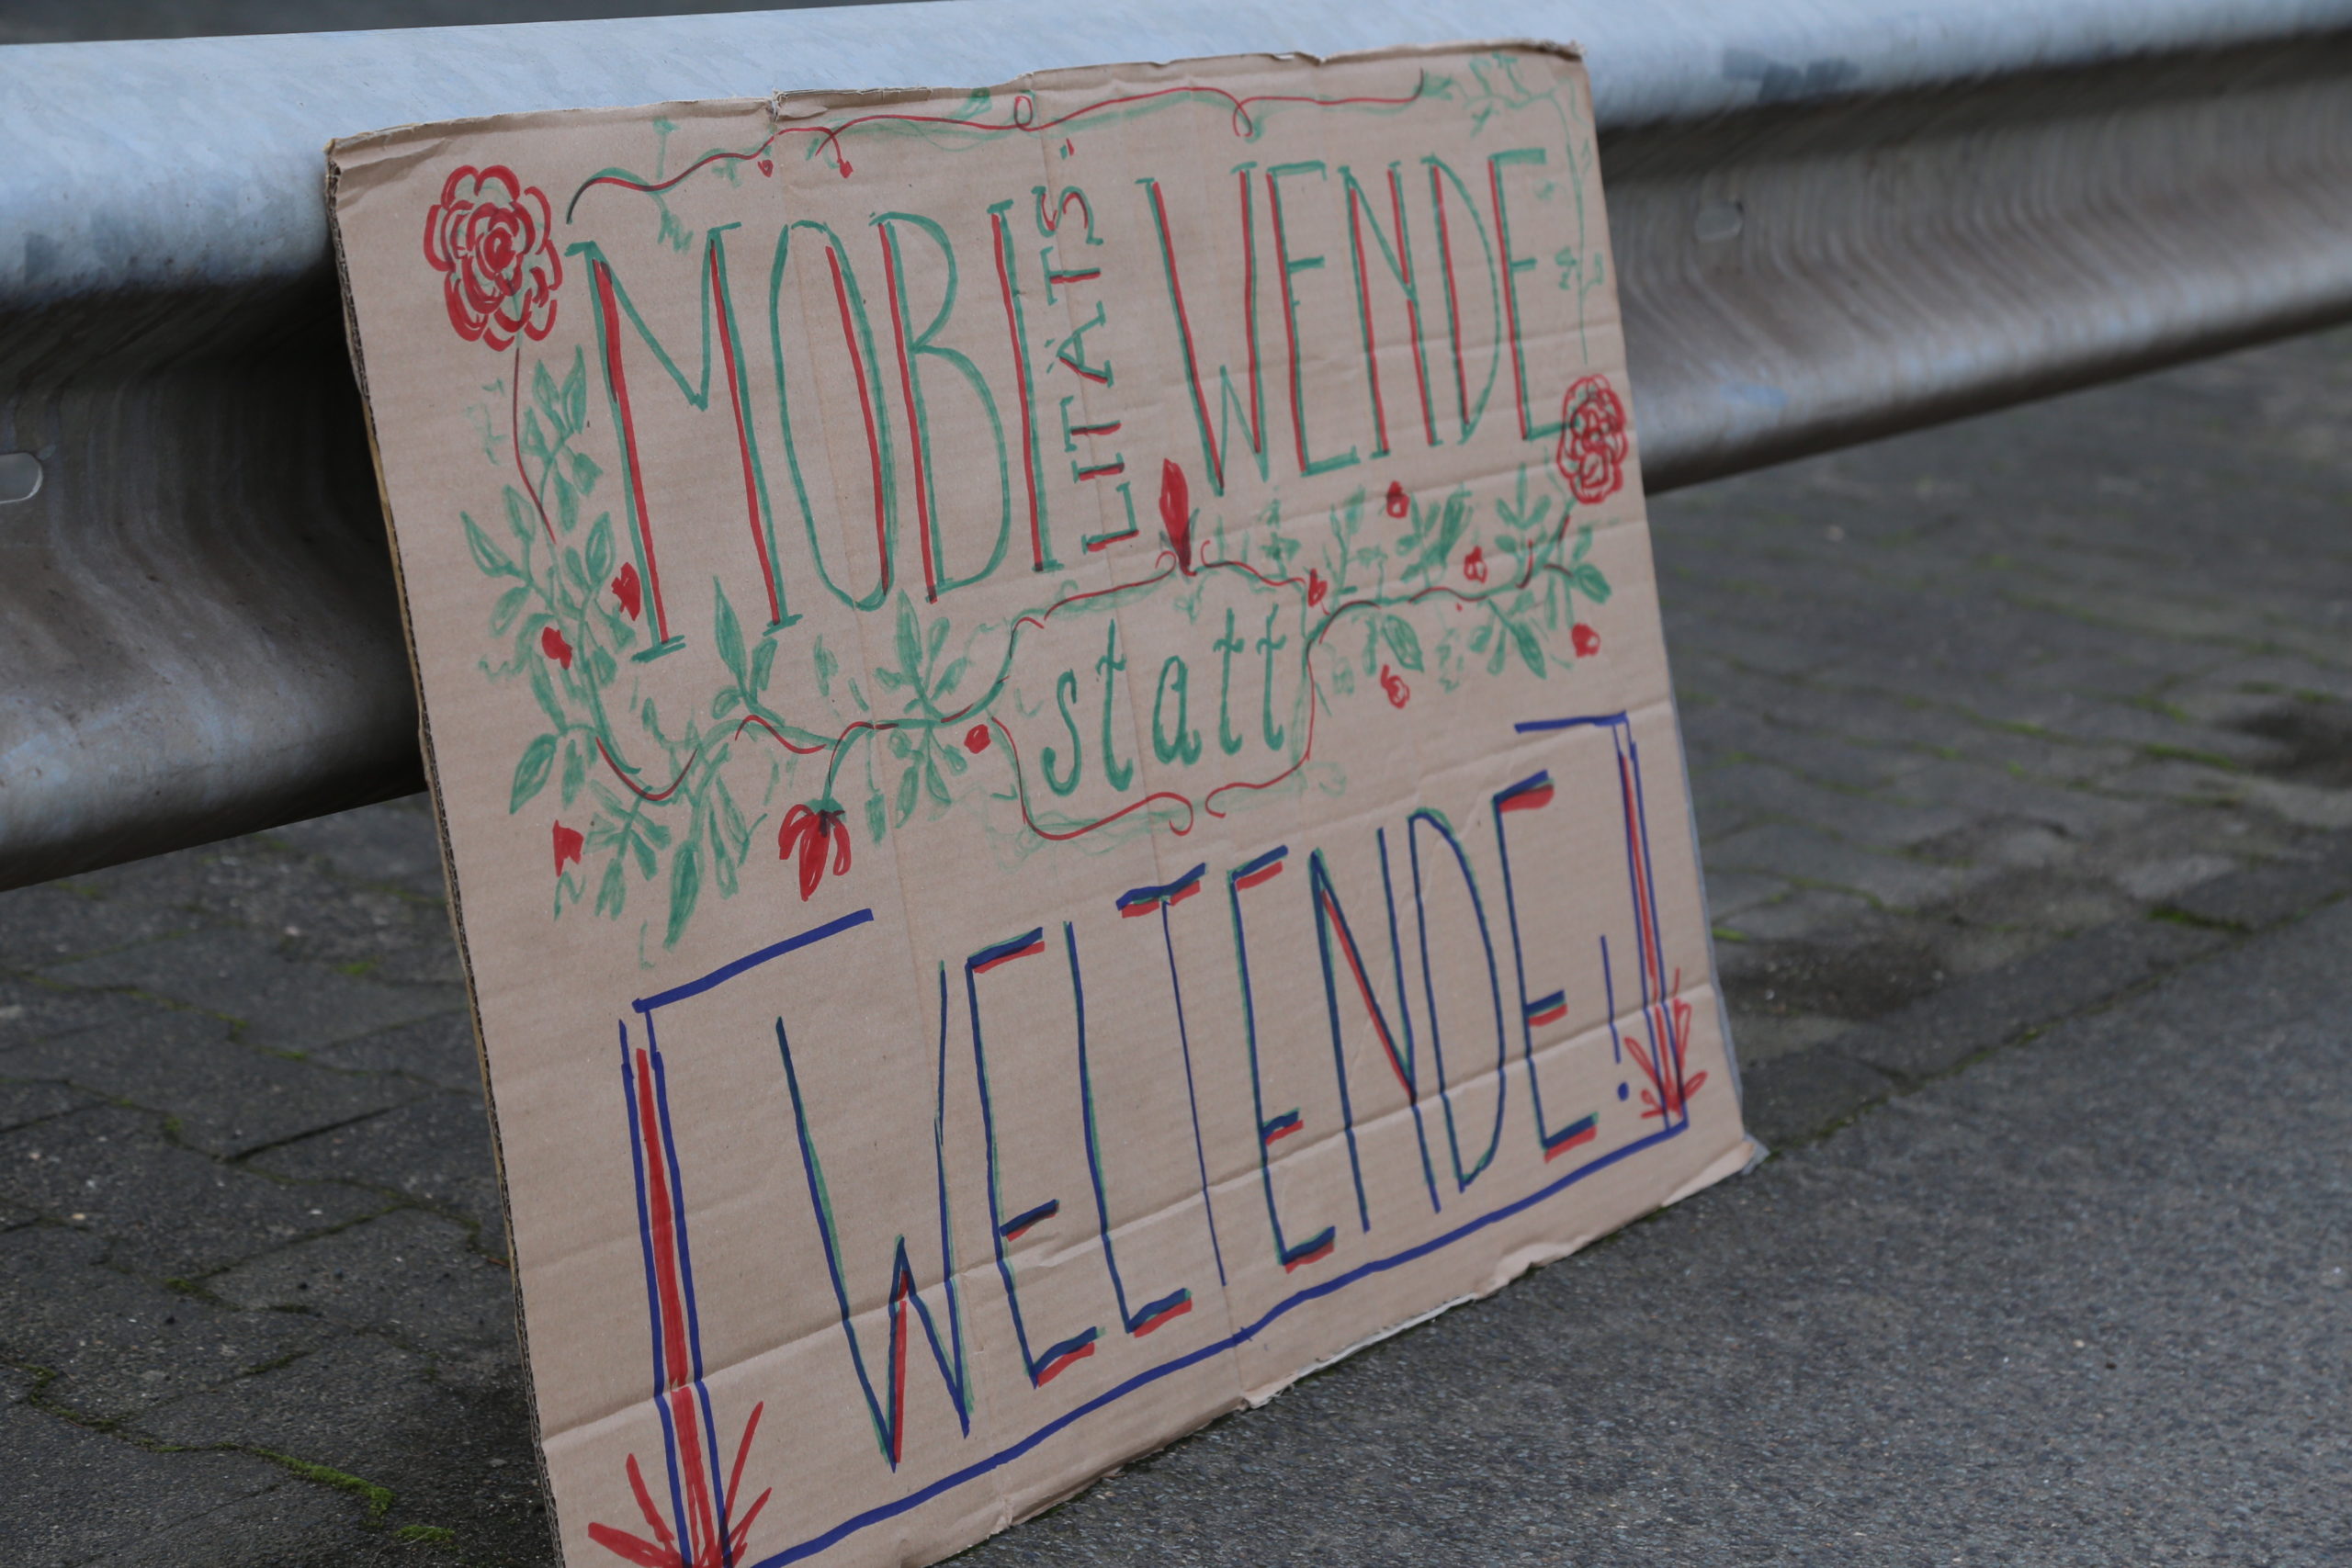 MOBILITÄTS-WENDE
statt
WELTENDE!